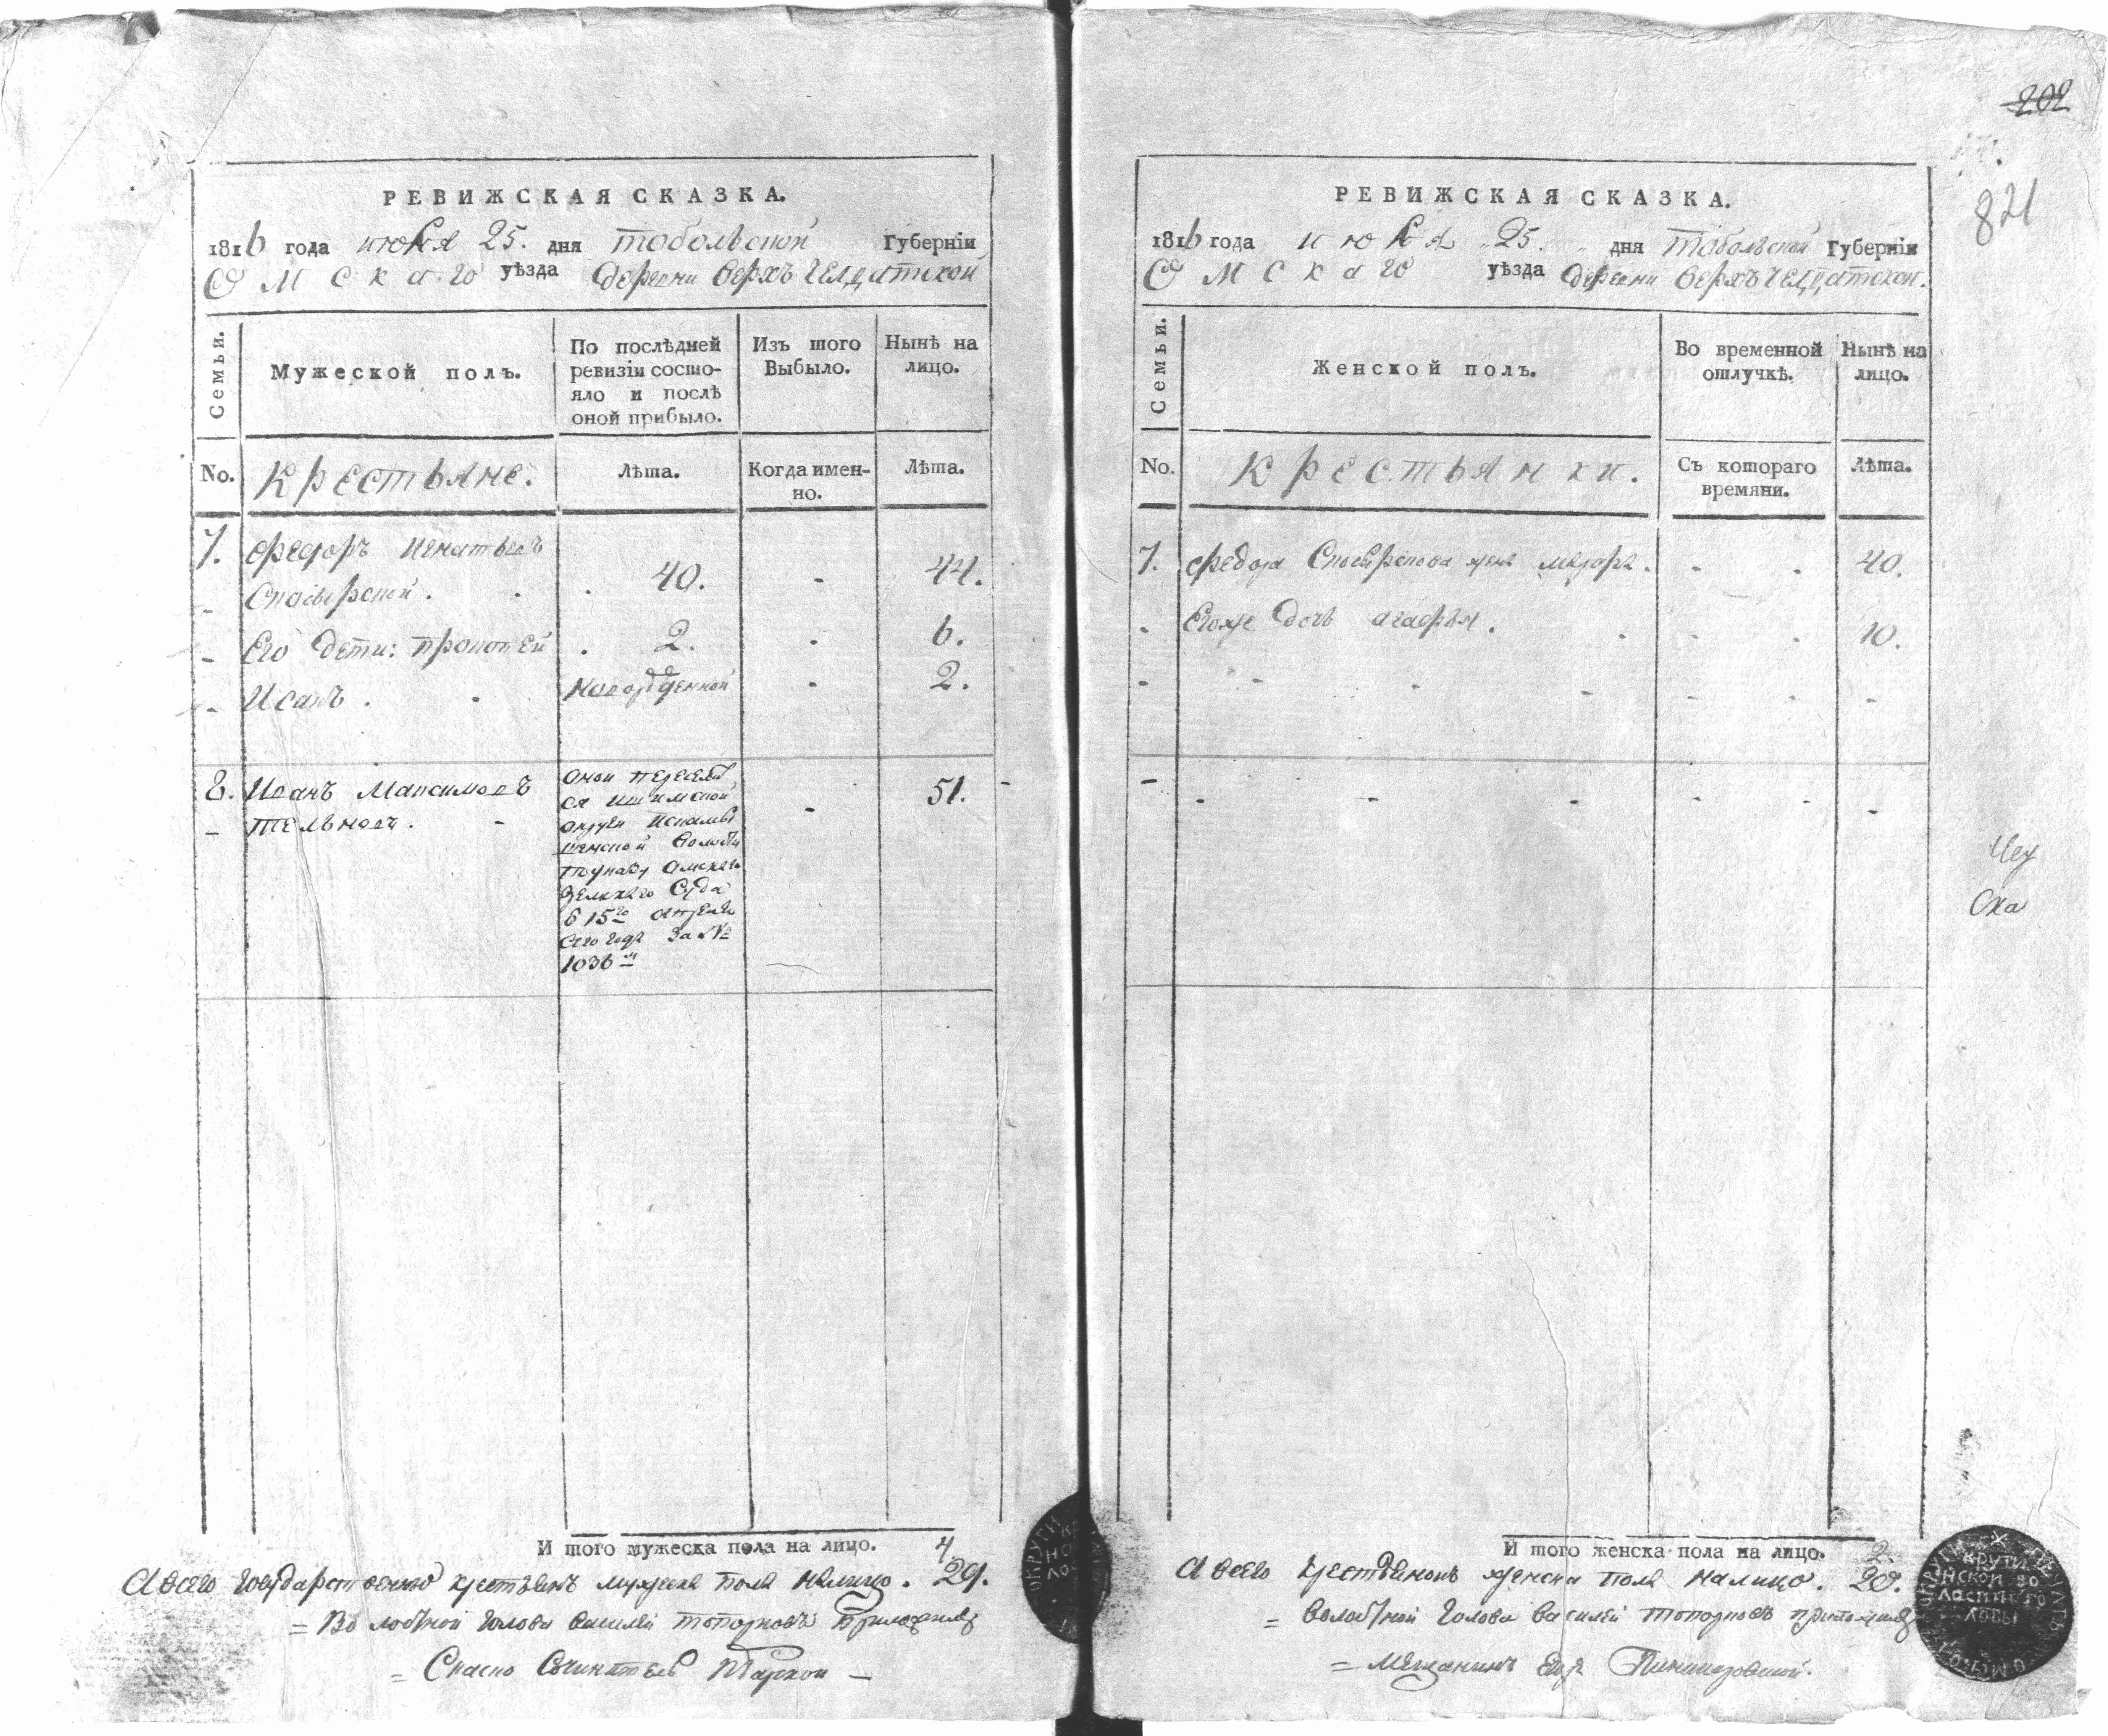 РЕВИЖСКАЯ СКАЗКА.
1816 года июля 25. дня Тобольской Губерніи
Омскаго уѣзда деревни Верхъ
Семьи.
Мужеской полъ.
По послѣдней ревизіи состо-
яло и послѣ
оной прибыло.
Изъ того
Выбыло.
Нынѣ на
лицо.
No. Крестьяне.
Лѣта.
Когда имен-
но.
Лѣта.
7. Федоръ Игнатьевъ
Сповирской. 40. 44.
Его дети: Прокопей 2. 6.
Исакъ. новорожденной 2.
8. Иванъ Максимовъ 51.
Тельновъ.
оной переселил
ся Ишимской
округи
волости
по указу Омскаго
Земскаго Суда
15го апреля
сего года за №
1036м
И того мужеска пола на лицо. 4
А всего государственно крестьянъ мужеска пола налицо. 29.
Волостной голова Василей Топорковъ приложилъ
202
821
РЕВИЖСКАЯ СКАЗКА.
1816 года июля 25. дня Тобольской Губерніи
Омскаго уѣзда деревни Верхъ
Семьи.
Женской полъ.
Во временной
отлучкѣ.
Нынѣ на
лицо.
No. Крестьянки.
Съ котораго
времяни.
Лѣта.
7. Федора жена 40.
Егоже дочь Агафья. 10.
И того женска пола на лицо. 2.
А всего крестьянокъ женска пола налицо. 20.
Волостной голова Василей Топорковъ приложилъ
Мещанинъ